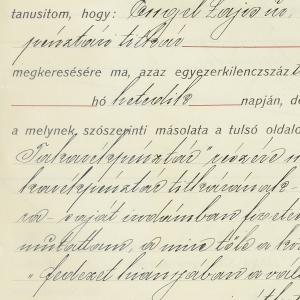 tanusitom, hogy: Engel Lajos úr,
pénztári titkár
megkeresésére ma, azaz egyezerkilenczszáz
hó hetedik napján, d
a melynek szószerinti másolata a tulsó oldalo
Takarékpénztár" részére
karékpénztár titkárának
saját irodámban fizetés
mutattam, a mire tőle a kö
"fedezet hiányában a vál